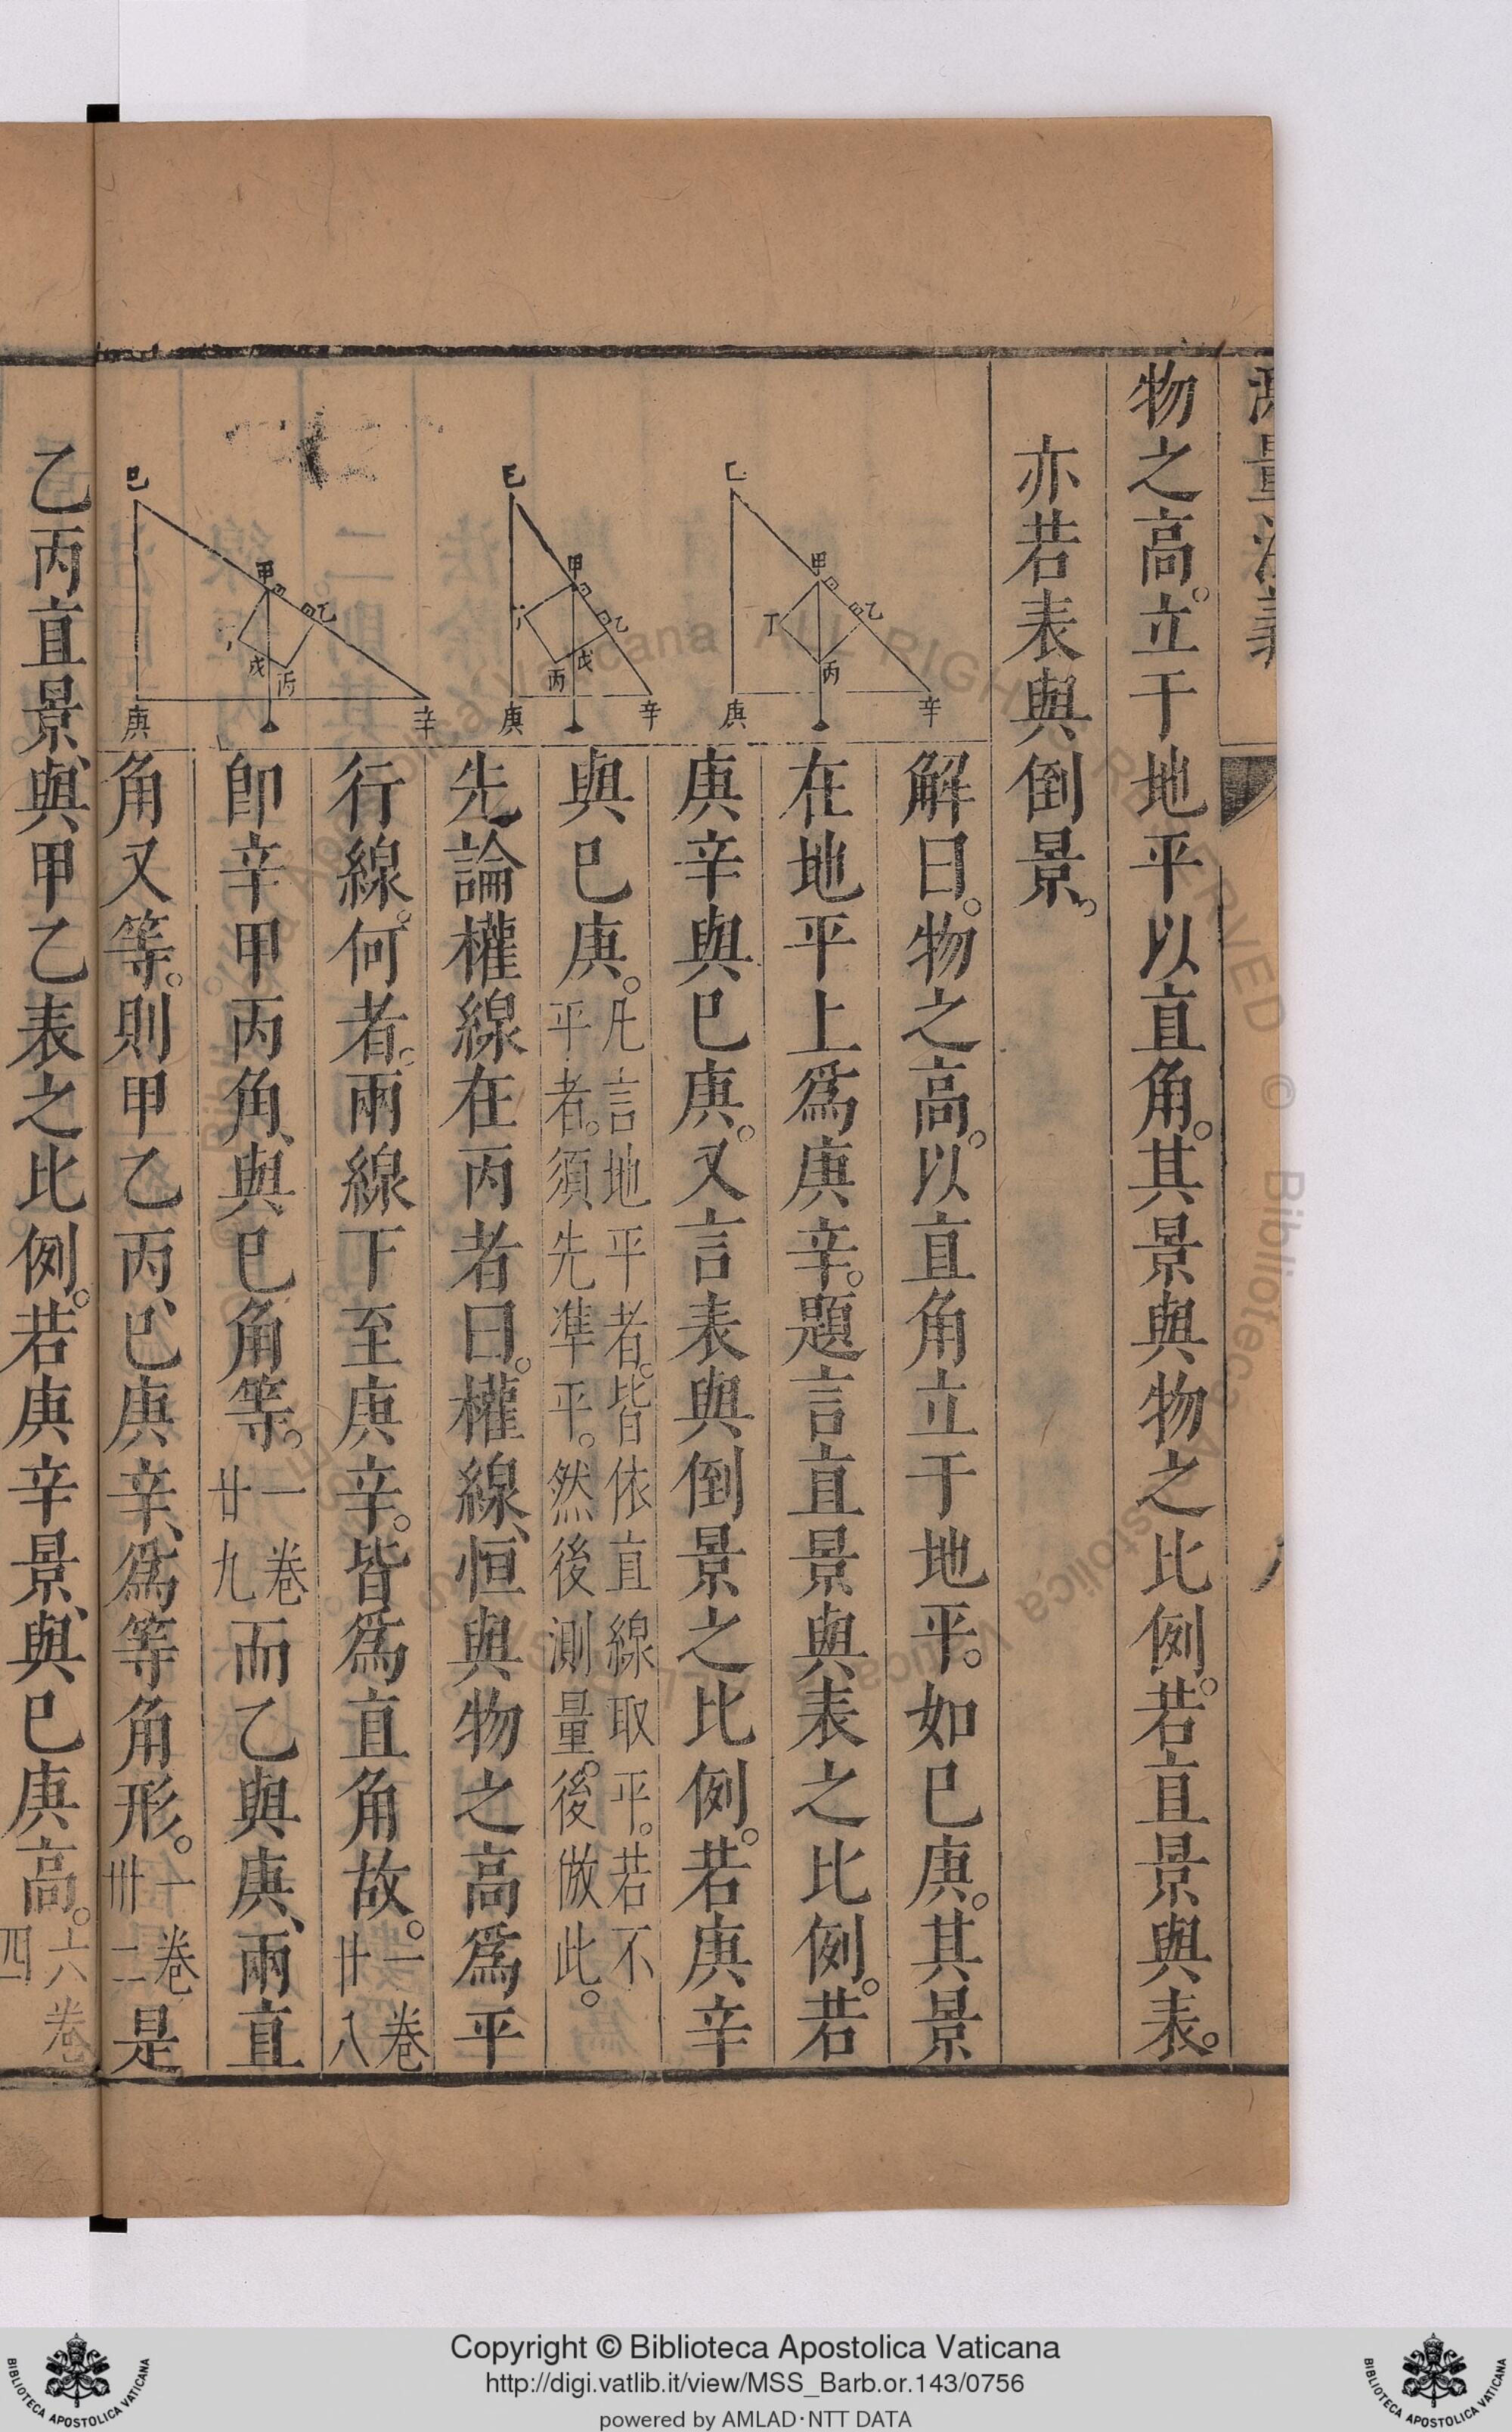 測量法義
物之高。立于地平以直角。其景與物之比例。若直景與表。
亦若表與倒景。
解曰。物之高。以直角立于地平。如巳庚。其景
在地平上爲庚辛。題言直景與表之比例。若
庚辛與巳庚。又言表與倒景之比例。若庚辛
與巳庚。
凡言地平者。皆依直線取平。若不
平者。須先準平。然後測量。後倣此。
先論權線在丙者曰。權線、恒與物之高爲平
行線。何者。兩線下至庚辛。皆爲直角故。
一卷
廿八
卽辛甲丙角、與巳角等。
一卷
廿九
而乙與庚、兩直
角又等。則甲乙丙、巳庚辛、爲等角形。
一卷
卅二
是
乙丙直景、與甲乙表之比例。若庚辛景、與巳庚高。
六卷
四
巳
甲
乙
丁
丙
庚
辛
巳
甲
乙
丁
丙
戊
庚
辛
巳
甲
乙
丁
戊
丙
庚
辛
Copyright © Biblioteca Apostolica Vaticana
http://digi.vatlib.it/view/MSS_Barb.or.143/0756
powered by AMLAD·NTT DATA
BIBLIOTECA APOSTOLICA VATICANA
BIBLIOTECA APOSTOLICA VATICANA